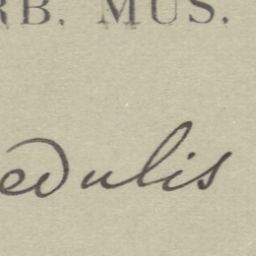 RB. MUS.
edulis